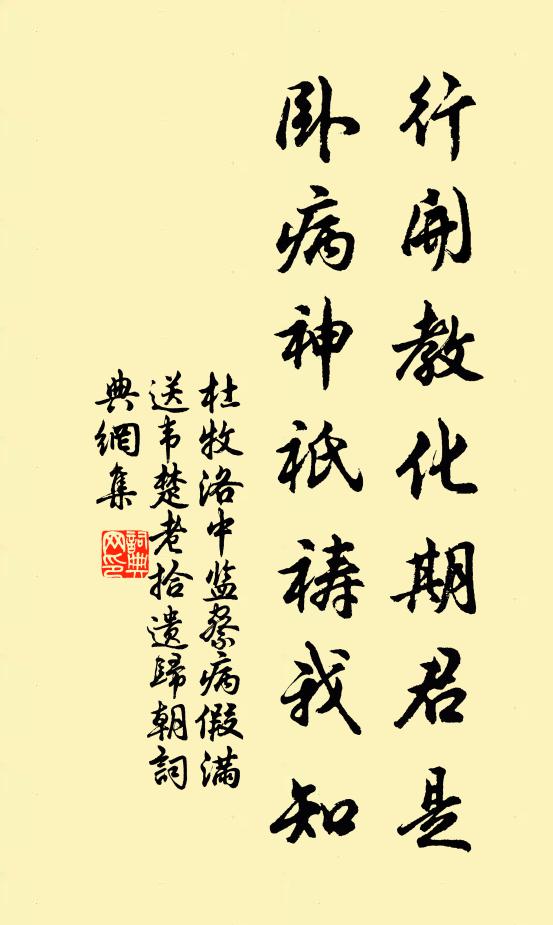 行開教化期君是
卧病神祇祷我知
杜牧洛中监察病假满
送韦楚老拾遗歸朝詞
典網集
詞典网印